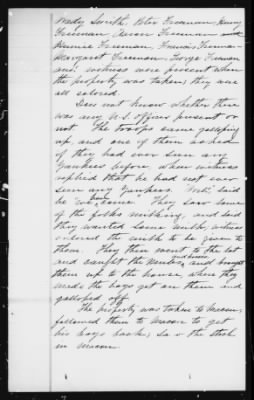 Medy Smith, Peter Freeman, Henry
Freeman, Aaron Freeman and
Minnie Freeman, Francis Freeman
Margaret Freeman, George Freeman
and witness were present when
the property was taken; they are
all colored.
Does not know whether there
was any U.S. officer present or
not. The troops came galloping
up, and one of them asked
if they had ever seen any
Yankees before, when witness
replied that he had not ever
seen any Yankees. Well said
he we have come. They saw some
of the folks milking, and said
they wanted some milk, witness
ordered the milk to be given to
them. They then went to the lot
and caught the mules and horses and brought
them up to the house, when they
made the boys get on them and
galloped off.
The property was taken to Macon;
followed them to Macon to get
his boys back; saw the stock
in Macon.